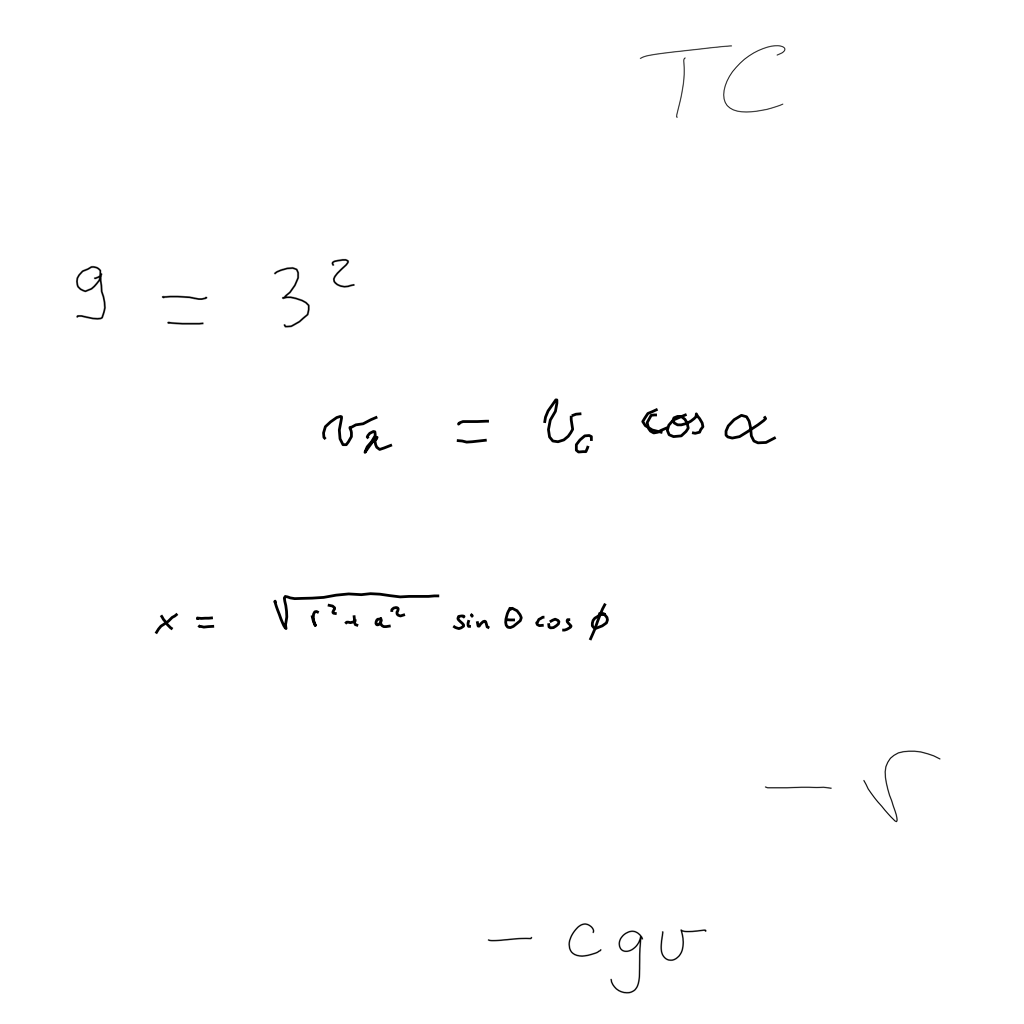 TC
9 = 3²
vₓ = v₀ cos α
x = √(r²+a²) sin θ cos ϕ
- r
- cgv